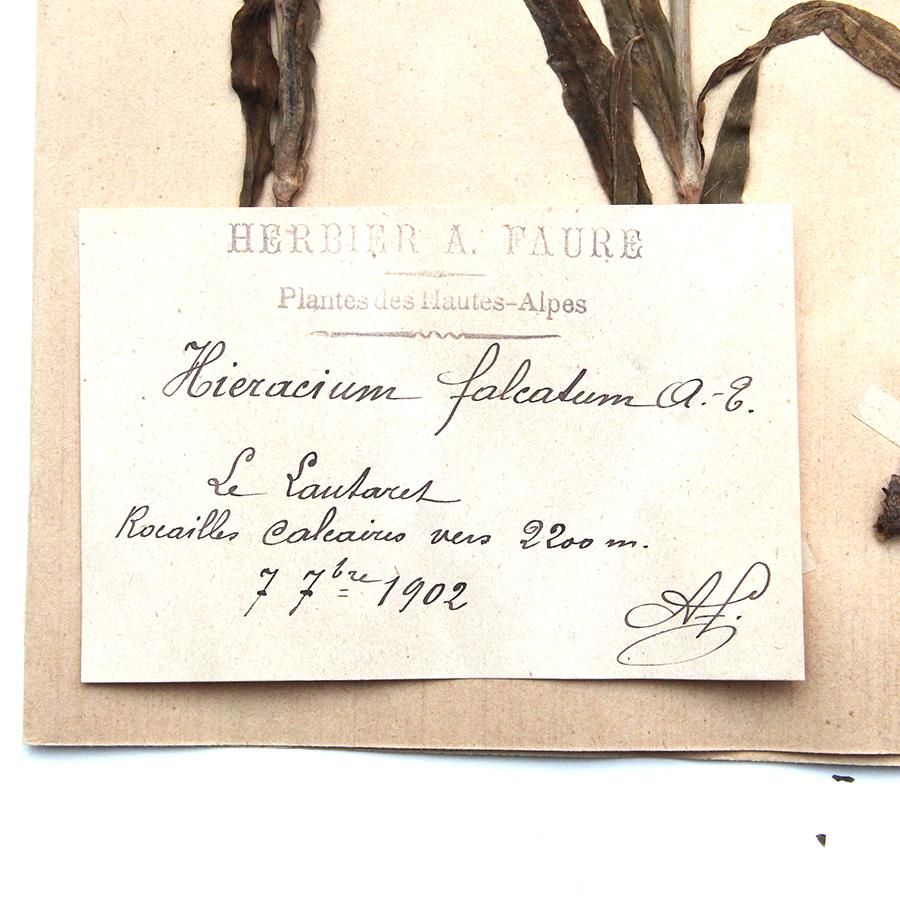 HERBIER A. FAURE
Plantes des Hautes-Alpes
Hieracium falcatum A.-T.
Le Lautaret
Rocailles calcaires vers 2200 m.
7 7bre 1902
AF.